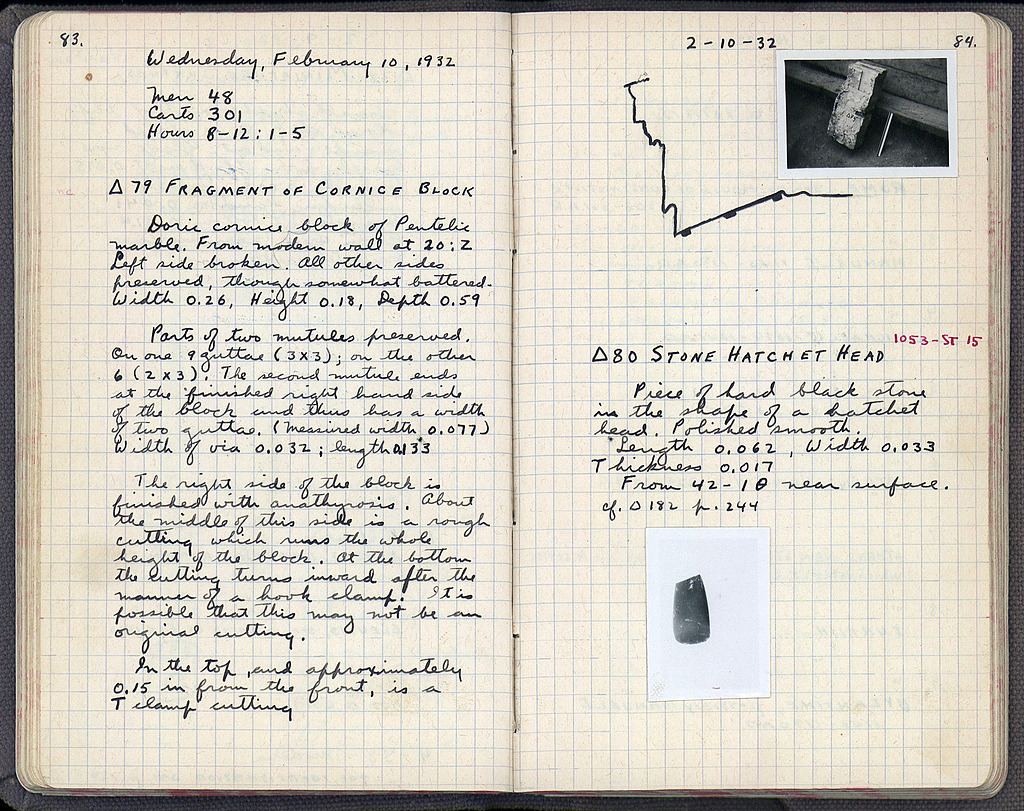 83.
Wednesday, February 10, 1932
Men 48
Carts 301
Hours 8-12 : 1-5
Δ 79 FRAGMENT OF CORNICE BLOCK
Doric cornice block of Pentelic
marble. From modern wall at 20:Z
Left side broken. All other sides
preserved, though somewhat battered.
Width 0.26, Height 0.18, Depth 0.59
Parts of two mutules preserved.
On one 9 guttae (3x3); on the other
6 (2x3). The second mutule ends
at the finished right hand side
of the block and thus has a width
of two guttae. (Measured width 0.077)
Width of via 0.032; length 0.133
The right side of the block is
finished with anathyrosis. About
the middle of this side is a rough
cutting which runs the whole
height of the block. At the bottom
the cutting turns inward after the
manner of a hook clamp. It is
possible that this may not be an
original cutting.
In the top, and approximately
0.15 in from the front, is a
T clamp cutting
2-10-32
84.
1053-ST 15
Δ80 STONE HATCHET HEAD
Piece of hard black stone
in the shape of a hatchet
head. Polished smooth.
Length 0.062, Width 0.033
Thickness 0.017
From 42-1Θ near surface.
cf. Δ182 p. 244